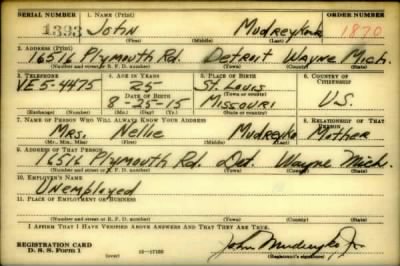 SERIAL NUMBER 1. NAME (Print) ORDER NUMBER
1393 John 1870
(First) (Middle) (Last)
2. ADDRESS (Print)
16516 Plymouth Rd. Detroit Wayne Mich.
(Number and street or R. F. D. number) (Town) (County) (State)
3. TELEPHONE 4. AGE IN YEARS 5. PLACE OF BIRTH 6. COUNTRY OF CITIZENSHIP
VE 5-4475 25 St. Louis
DATE OF BIRTH (Town or county)
8-25-15 Missouri U.S.
(Exchange) (Number) (Mo.) (Day) (Yr.) (State or country)
7. NAME OF PERSON WHO WILL ALWAYS KNOW YOUR ADDRESS 8. RELATIONSHIP OF THAT PERSON
Mrs. Nellie Mudreyko Mother
(Mr., Mrs., Miss) (First) (Middle) (Last)
9. ADDRESS OF THAT PERSON
16516 Plymouth Rd. Det. Wayne Mich.
(Number and street or R. F. D. number) (Town) (County) (State)
10. EMPLOYER'S NAME
Unemployed
11. PLACE OF EMPLOYMENT OR BUSINESS
(Number and street or R. F. D. number) (Town) (County) (State)
I AFFIRM THAT I HAVE VERIFIED ABOVE ANSWERS AND THAT THEY ARE TRUE.
REGISTRATION CARD
D. S. S. Form 1 (over) 16-17105 John Mudreyko Jr.
(Registrant's signature)